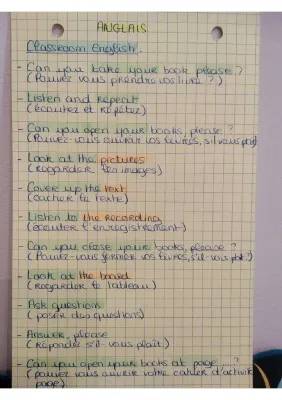 ANGLAIS
Classroom English.
- Can you take your book please?
(Pouvez vous prendre vos livre?)
- Listen and repeat
(écoutez et répétez)
- Can you open your books, please?
(Pouvez-vous ouvrir vos livres, s'il vous plait)
- Look at the pictures
(regarder les images)
- Cover up the text
(cacher le texte)
- Listen to the recording
(écouter l'enregistrement)
- Can you close your books, please?
(Pouvez-vous fermer vos livres, s'il-vous plait?)
- Look at the board
(regarder le tableau)
- Ask questions
(poser des questions)
- Answer, please
(répondre s'il-vous plait)
- Can you open your books at page ...?
(pouvez vous ouvrir votre cahier d'activité
page)